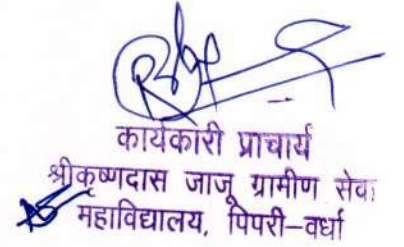 कार्यकारी प्राचार्य
श्रीकृष्णदास जाजू ग्रामीण सेवा
महाविद्यालय, पिपरी-वर्धा